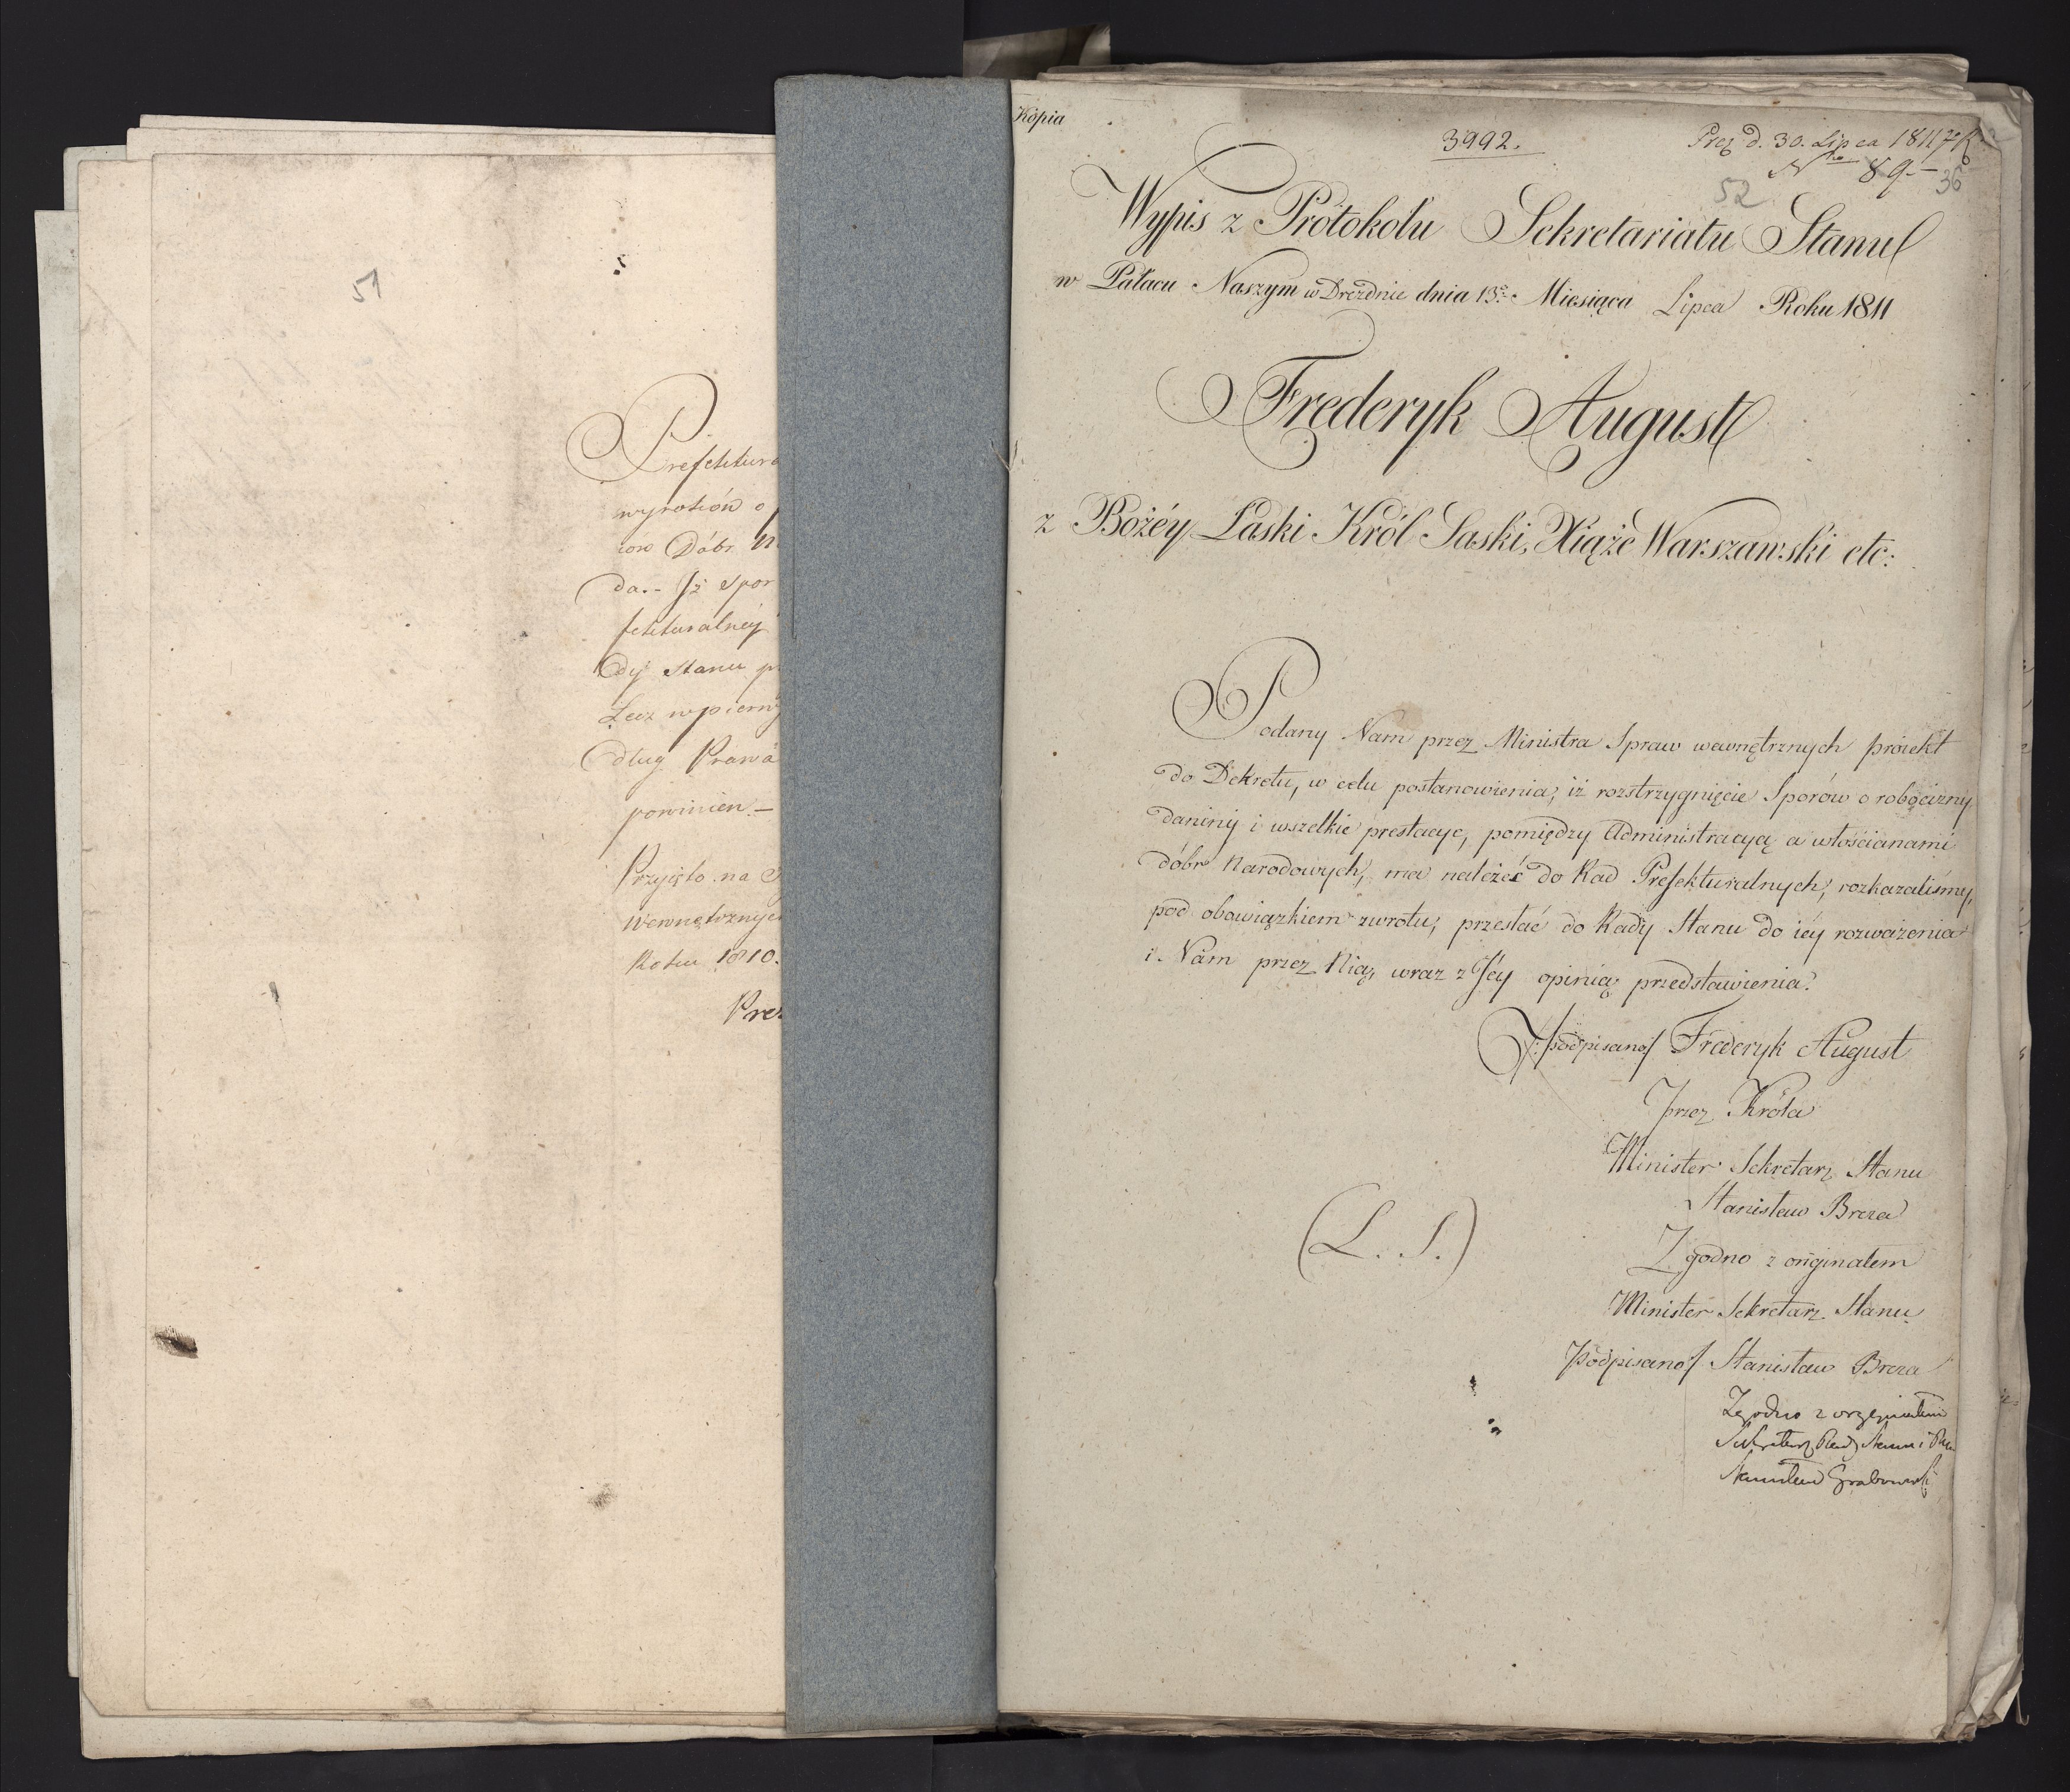 51
Prefektura
wyrokow o
iow Dobr N
da.- Jż Spor
fekturalnéy
dy Stanu p
Lecz wpierw
dług Prawa
powinien.-
Przyięto na S
Wewnętrznych
Roku 1810.
Prez
Kopia
3992.
Prez d. 30. Lipca 1811
Nro 89.-
52
36
Wypis z Protokołu Sekretariatu Stanu
w Pałacu Naszym w Dreźdnie dnia 13º Miesiąca Lipca Roku 1811
Frederyk August
z Bożéy Łaski Król Saski, Xiąże Warszawski etc:
Podany Nam przez Ministra Spraw wewnętrznych proiekt
do Dekretu, w celu postanowienia, iż rozstrzygnięcie Sporów o robocizny
daniny i wszelkie prestacye, pomiędzy Administracyą a włościanami
dóbr Narodowych, ma należeć do Rad Prefekturalnych, rozkazaliśmy,
pod obowiązkiem zwrotu, przesłać do Rady Stanu do iéy rozważenia
i Nam przez Nią, wraz z Jéy opinią przedstawienia.
/:podpisano/ Frederyk August
przez Króla
Minister Sekretarz Stanu
Stanisław Breza
(L. S.)
Zgodno z originałem
Minister Sekretarz Stanu.
podpisano/ Stanisław Breza
Zgodno z oryginałem
Sekretarz Rady Stanu i
Stanisław Grabowski